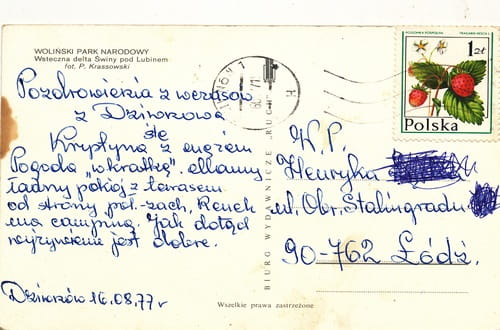 WOLIŃSKI PARK NARODOWY
Wsteczna delta Świny pod Lubinem
fot. P. Krassowski
Pozdrowienia z wczasów
z Dziwnowa
śle
Krystyna z mężem
Pogoda „w kratkę". Mamy
ładny pokój z tarasem
od strony poł-zach,
na camping. Jak dotąd
wyżywienie jest dobre.
Dziwnów 16.08.77 r
Wszelkie prawa zastrzeżone
BIURO WYDAWNICZE „RUCH"
POZIOMKA POSPOLITA
FRAGARIA VESCA L.
1 zł
Polska
W.P.
Henryka
ul. Obr. Stalingradu
90-762 Łódź.